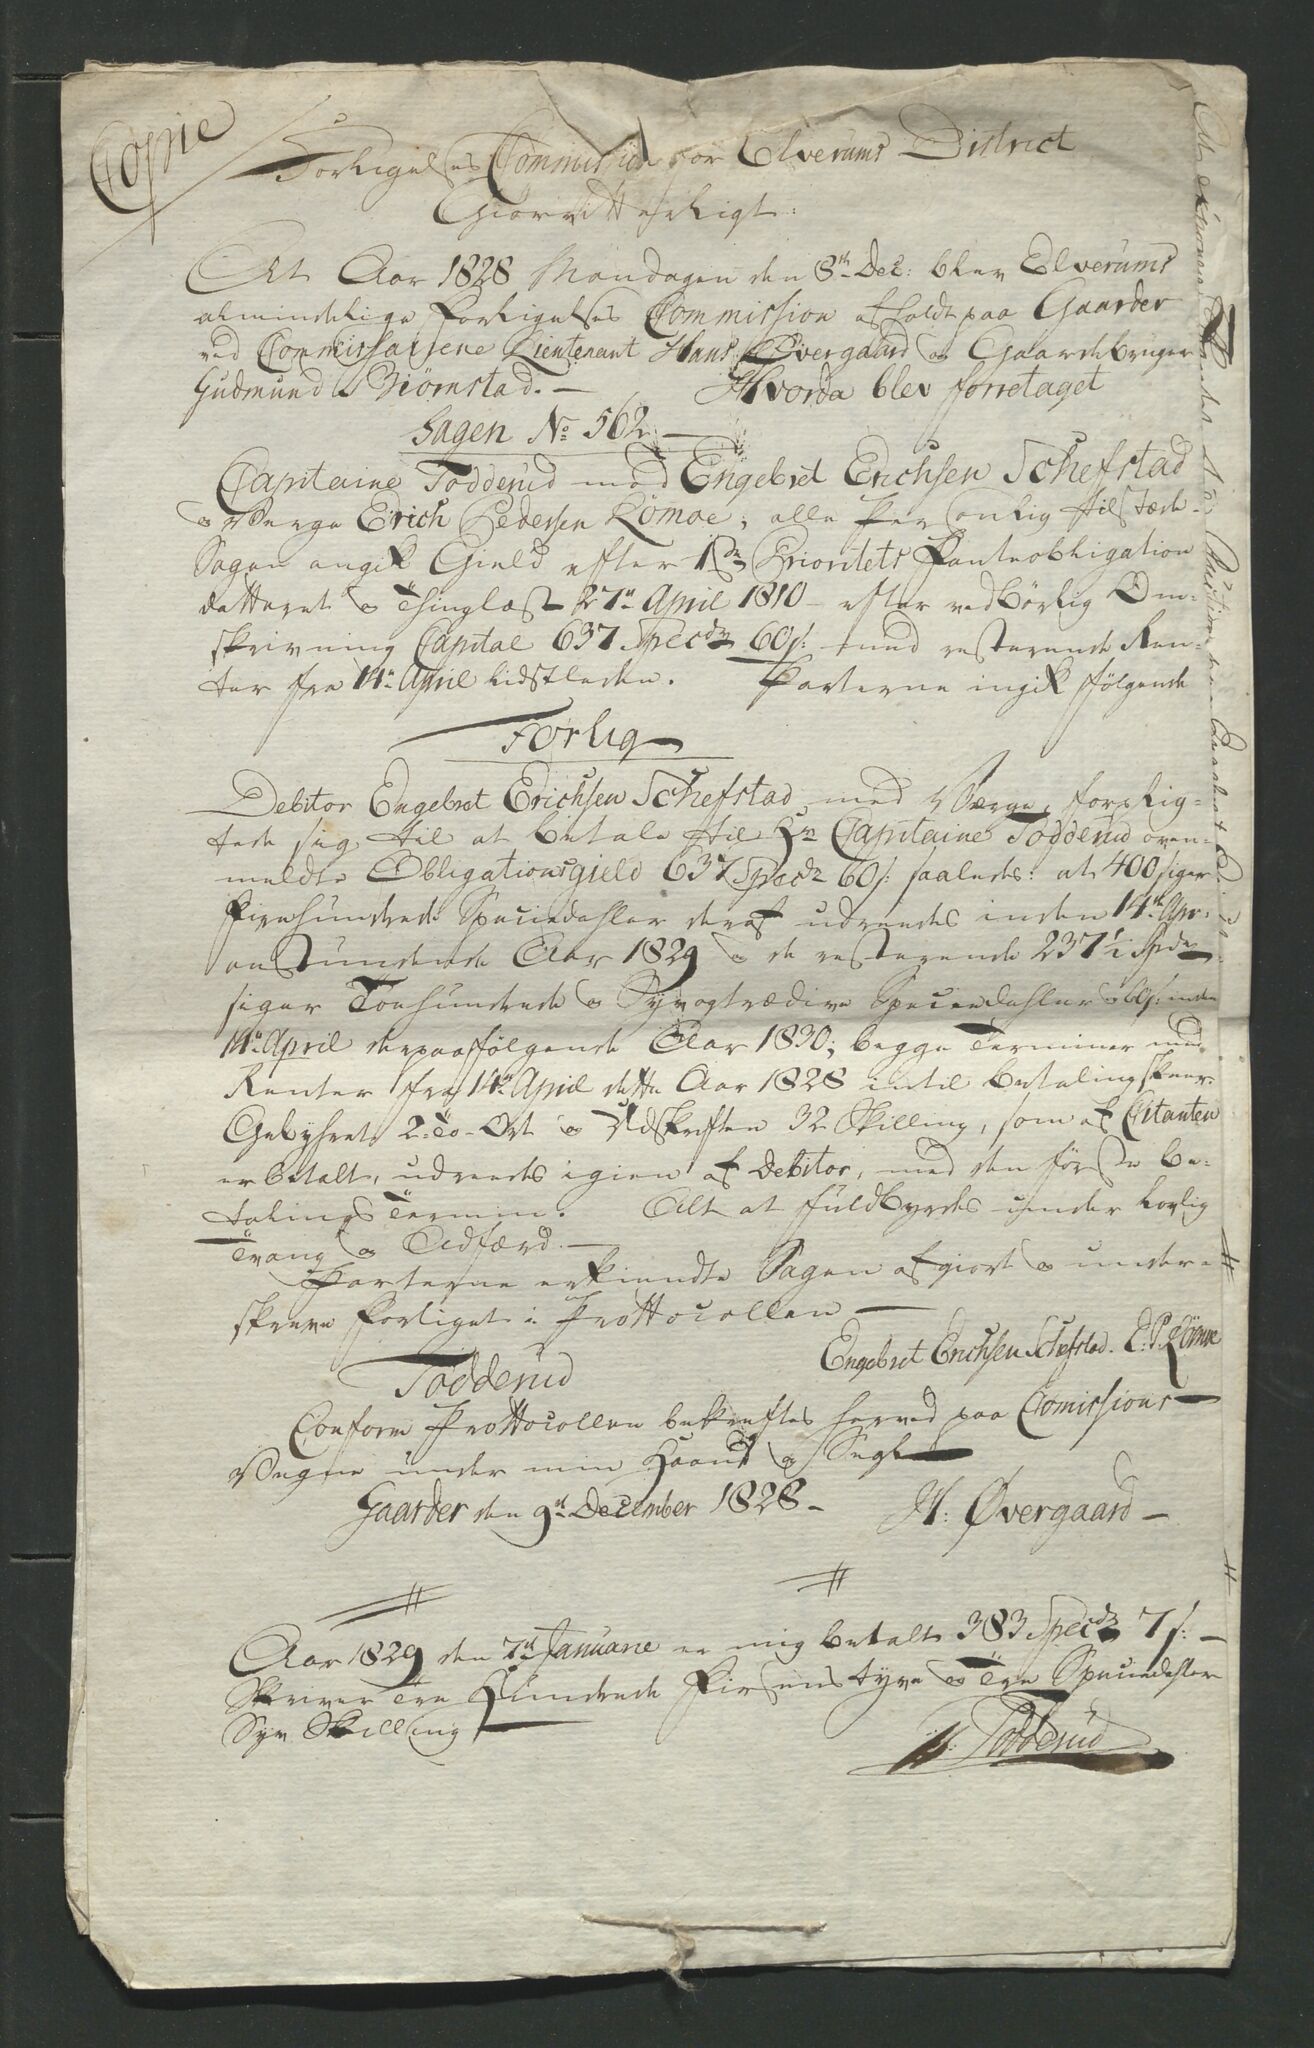 Copie
Forligelses Commission for Elverums District
Giør vitterligt:
At Aar 1828 Mandagen den 8de Dec: blev Elverums
almindelige Forligelses Commission afholdt paa Gaarder
ved Commissairene Lieutenant Hans Øvergaard og Gaardebruger
Gudmund Biørnstad. — Hvorda blev forretaget
Sagen No 562. —
Capitaine Todderud mod Engebret Erichsen Schefstad
og Værge Erich Pedersen Romoe, alle Personlig tilstæde.
Sagen angik Gield efter 1ste Prioritets Panteobligation
datteret og Thinglæst 27de April 1810 – efter vedbørlig Om-
skrivning Capital 637 Specdr 60 s: med resterende Ren-
ter fra 14de April sidstleden. Parterne ingik følgende
Forlig
Debitor Engebret Erichsen Schefstad med Værge, forplig-
tede sig til at betale til Hr Capitaine Todderud oven-
meldte Obligationsgield 637 Specdr 60 s: saaledes: at 400 siger
Firehundrede Speciedahler deraf udreedes inden 14de Apr:
anstundende Aar 1829 og de resterende 237 1/2 Spdr
siger Toehundrede og Syvogtrædive Speciedahler og 60 s: inden
14de April derpaafølgende Aar 1830; begge Terminer med
Renter fra 14de April dette Aar 1828 intil betaling skeer.
Gebyhret 2 – To – Ort og Udskriften 32 Skilling, som af Citanten
er betalt, udreedes igien af Debitor, med den første be-
talings Termin. Alt at fuldbyrdes under lovlig
Tvang og Adfærd. —
Parterne erkiendte Sagen afgiort og under-
skrev Forliget i Prottocollen —
Engebret Erichsen Schefstad. E. P. Romoe
Todderud
Conform Prottocollen bekreftes herved paa Comissions
Vegne under min Haand og Segl
Gaarder den 9de December 1828 – H: Øvergaard –
Aar 1829 den 7de Januarie er mig betalt 383 Specdr 7 s: –
Skriver Tre Hundrede Firesinstyve og Tre Speciedahler
Syv Skilling
Todderud